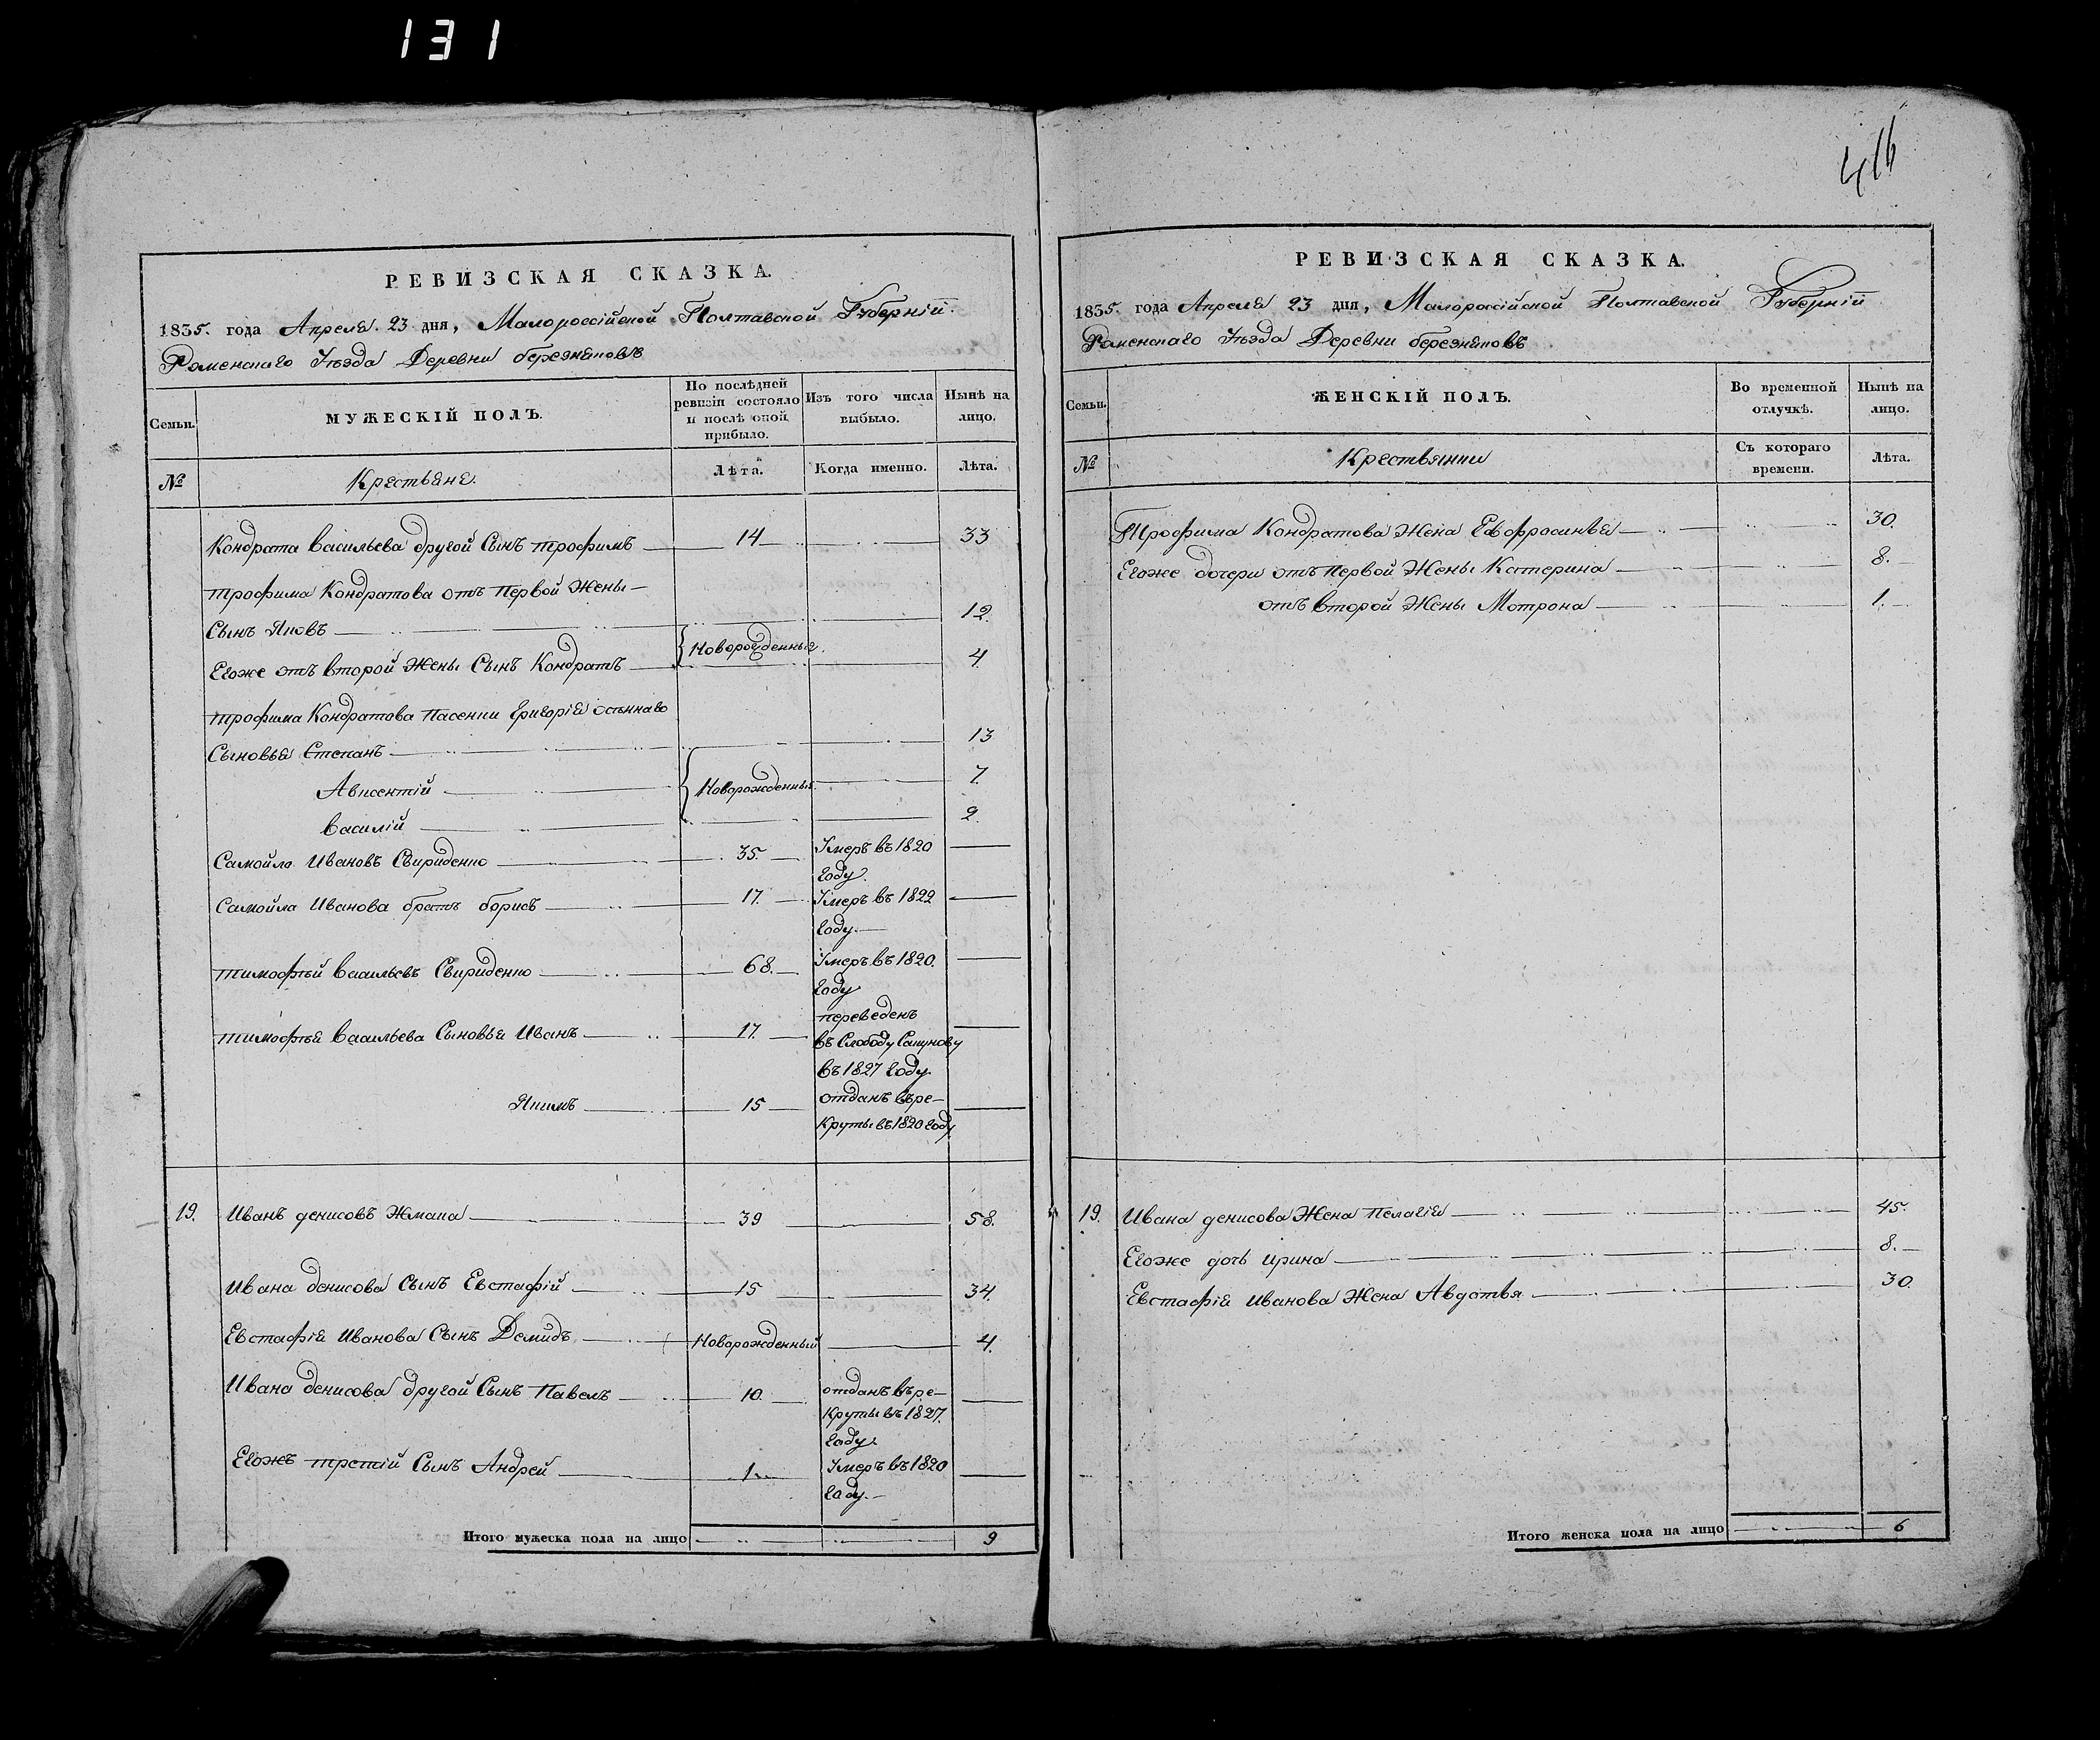 131
РЕВИЗСКАЯ СКАЗКА.
1835. года Апреля 23 дня, Малороссійской Полтавской Губерній.
Роменскаго Уѣзда Деревни березняковъ
Семьи.
МУЖЕСКІЙ ПОЛЪ.
По послѣдней ревизіи состояло и послѣ оной прибыло.
Изъ того числа выбыло.
Нынѣ на лицо.
№
Крестьяне.
Лѣта.
Когда именно.
Лѣта.
Кондрата васильева другой Сынъ трофимъ 14 33
трофима Кондратова отъ первой Жены
Сынъ Яковъ 12.
Новорожденные.
Егоже отъ второй Жены Сынъ Кондратъ 4.
трофима Кондратова пасенки Григорія
Сыновья Степанъ 13
Авксентій Новорожденные 7.
василій 2.
Самойло Ивановъ Свириденко 35. Умеръ въ 1820
году.
Самойла Иванова братъ борисъ 17. Умеръ въ 1822
году.
тимофѣй васильевъ Свириденко 68. Умеръ въ 1820.
году
тимофѣя васильева Сыновья Иванъ 17. переведенъ
въ Слободу Сапунову
въ 1827 году.
Якимъ 15 отданъ въ ре-
круты въ 1820 году
19. Иванъ денисовъ Жмака 39 58.
Ивана денисова Сынъ Евстафій 15 34.
Евстафія Иванова Сынъ Демидъ Новорожденный 4.
Ивана денисова другой Сынъ Павелъ 10. отданъ въ ре-
круты въ 1827.
году.
Егожъ третій Сынъ Андрей 1. Умеръ въ 1820
году.
Итого мужеска пола на лицо 9
416
РЕВИЗСКАЯ СКАЗКА.
1835. года Апреля 23 дня, Малороссійской Полтавской Губерній
Роменскаго Уѣзда Деревни березняковъ
Семьи.
ЖЕНСКІЙ ПОЛЪ.
Во временной отлучкѣ.
Нынѣ на лицо.
№
Крестьянки
Съ котораго времени.
Лѣта.
Трофима Кондратова Жена Евфросинья 30.
Егоже дочери отъ первой Жены Катерина 8.
отъ второй Жены Мотрона 1.
19. Ивана денисова Жена Пелагія 45.
Егоже дочь ирина 8.
Евстафія Иванова Жена Авдотья 30
Итого женска пола на лицо 6